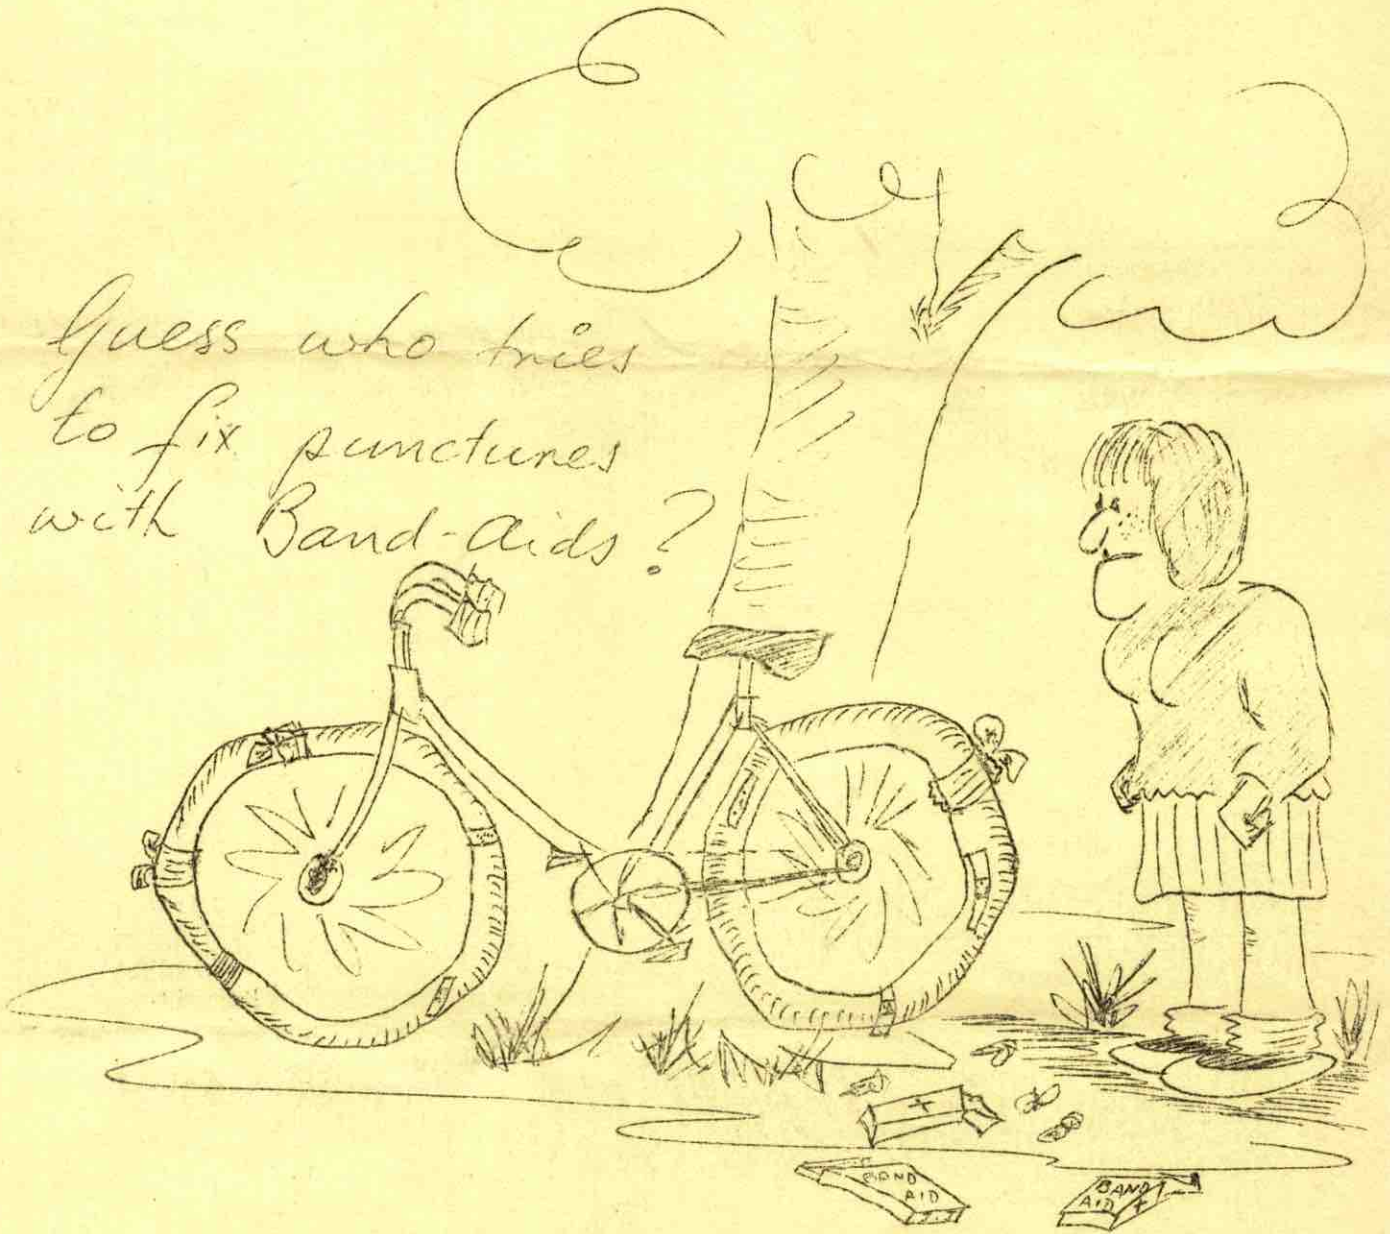 Guess who tries
to fix punctures
with Band-Aids?
BAND
AID
BAND
AID +